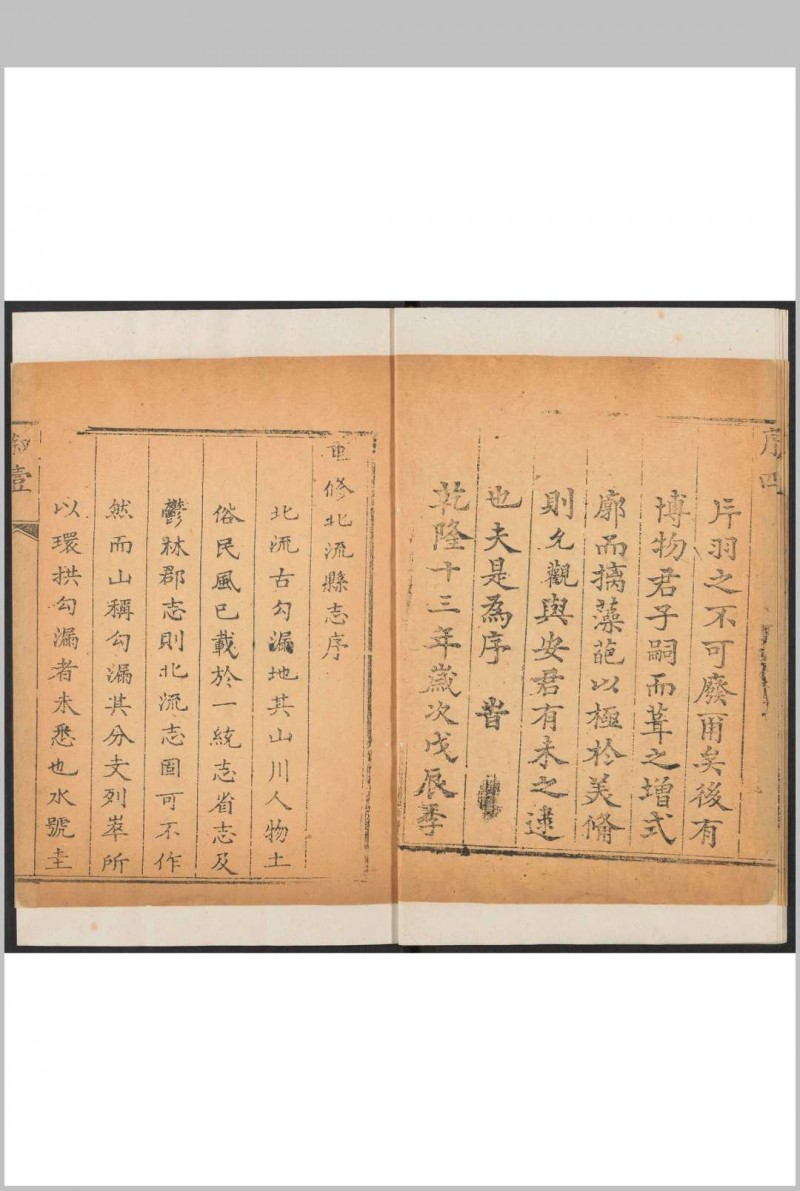 序四
片羽之不可廢甭矣後有
博物君子嗣而葺之增式
廓而摛藻葩以極於美脩
則允觀與安君有未之逮
也夫是為序 旹
乾隆十三年歲次戊辰季
重修北流縣志序
北流古勾漏地其山川人物土
俗民風已載於一統志省志及
鬱林郡志則北流志固可不作
然而山稱勾漏其分支列峯所
以環拱勾漏者未悉也水號圭
壹